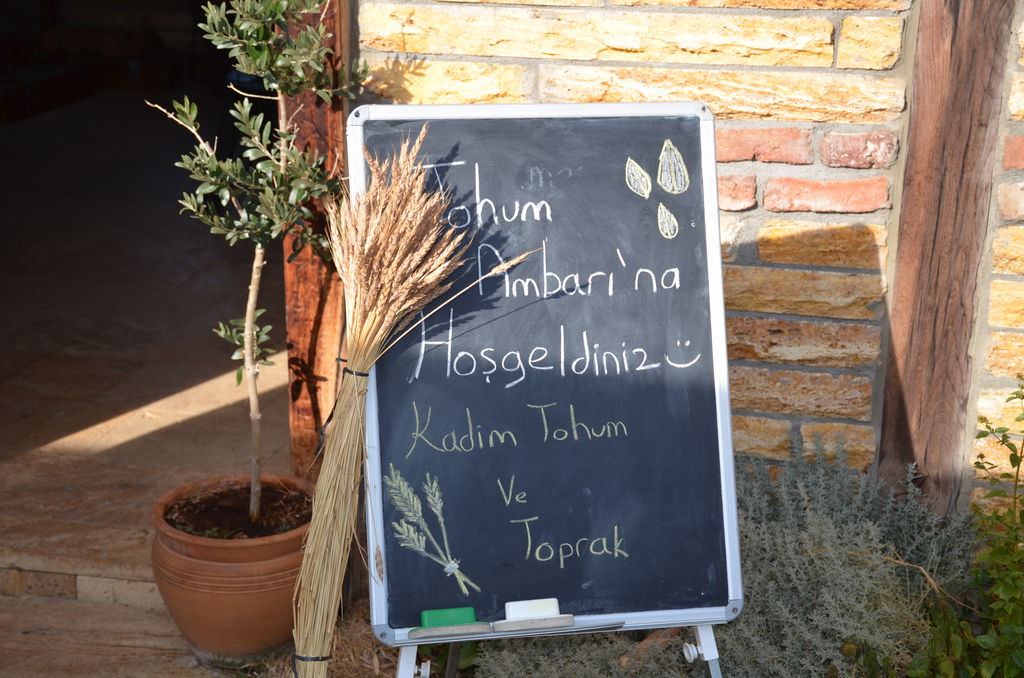 Tohum
Ambarı'na
Hoşgeldiniz :)
Kadim Tohum
Ve
Toprak